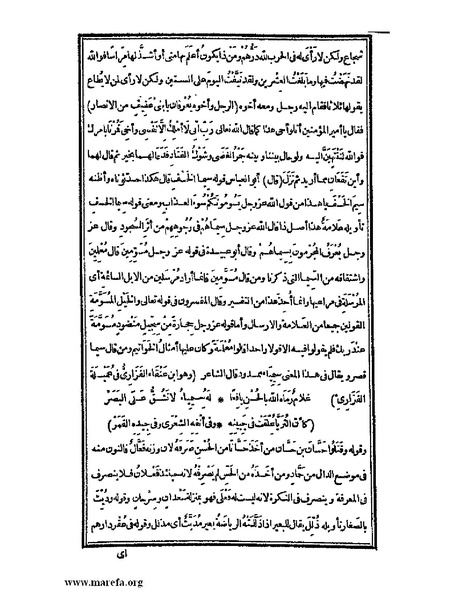 شجاع ولكن لا رأى له فى الحرب لله درهم ومن ذا يكون أعلم بها منى أو أشد لها مراسا فوالله
لقد نهضت فيها وما بلغت العشرين ولقد نيفت اليوم على الستين ولكن لا رأى لمن لا يطاع
يقولها ثلاثا فقام اليه رجل ومعه أخوه (الرجل وأخوه يعرفان بابنى عفيف من الانصار)
فقال يا أمير المؤمنين أنا وأخى هذا كما قال الله تعالى رب انى لا أملك الا نفسى وأخى فمرنا بأمرك
فوالله لننتهين اليه ولو حال بيننا وبينه جمر الغضى وشوك القتاد فدعا لهما بخير ثم قال لهما
وأين تقعان مما أريد ثم نزل (قال) أبو العباس قوله سيما الخسف قال هكذا حدثوناه وأظنه
سيم الخسف يا هذا من قول الله عز وجل يسومونكم سوء العذاب ومعنى قوله سيما الخسف
تأويله علامة هذا أصل ذا قال الله عز وجل سيماهم فى وجوههم من أثر السجود وقال عز
وجل يعرف المجرمون بسيماهم وقال أبو عبيدة فى قوله عز وجل مسومين قال معلمين
واشتقاقه من السيما التى ذكرنا ومن قال مسومين فانما أراد مرسلين من الابل السائمة أى
المرسلة فى مراعيها وانما أخذ هذا من التفسير وقال المفسرون فى قوله تعالى والخيل المسومة
القولين جميعا من العلامة والارسال وأما قوله عز وجل حجارة من سجيل منضود مسومة
عند ربك فلم يقولوا فيه الا قولا واحدا قالوا معلمة وكان عليها أمثال الخواتيم ومن قال سيما
قصر ويقال فى هذا المعنى سيمياء ممدود قال الشاعر (وهو ابن عنقاء الفزارى فى عميلة
الفزارى) غلام رماه الله بالحسن يافعا * له سيمياء لا تشق على البصر
(كأن الثريا علقت فى جبينه * وفى أنفه الشعرى وفى جيده القمر)
وقوله وقتلوا حسان بن حسان من أخذ حسانا من الحسن صرفه لان وزنه فعال فالنون منه
فى موضع الدال من حماد ومن أخذه من الحس لم يصرفه لانه حينئذ فعلان فلا ينصرف
فى المعرفة وينصرف فى النكرة لانه ليست له فعلى فهو بمنزلة سعدان وسرحان وقوله وديث
بالصغار تأويله ذلل يقال للبعير اذا ذللته الرياضة بعير مديث أى مذلل وقوله فى عقر دارهم
أى
www.marefa.org